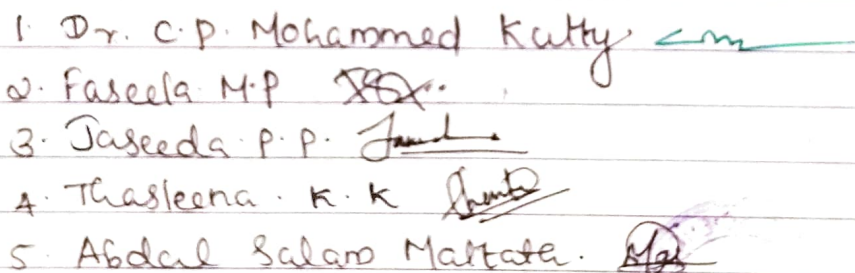 1. Dr. C.P. Mohammed Kutty
2. Faseela M.P
3. Jaseeda P.P.
4. Thasleena. K.K
5. Abdul Salam